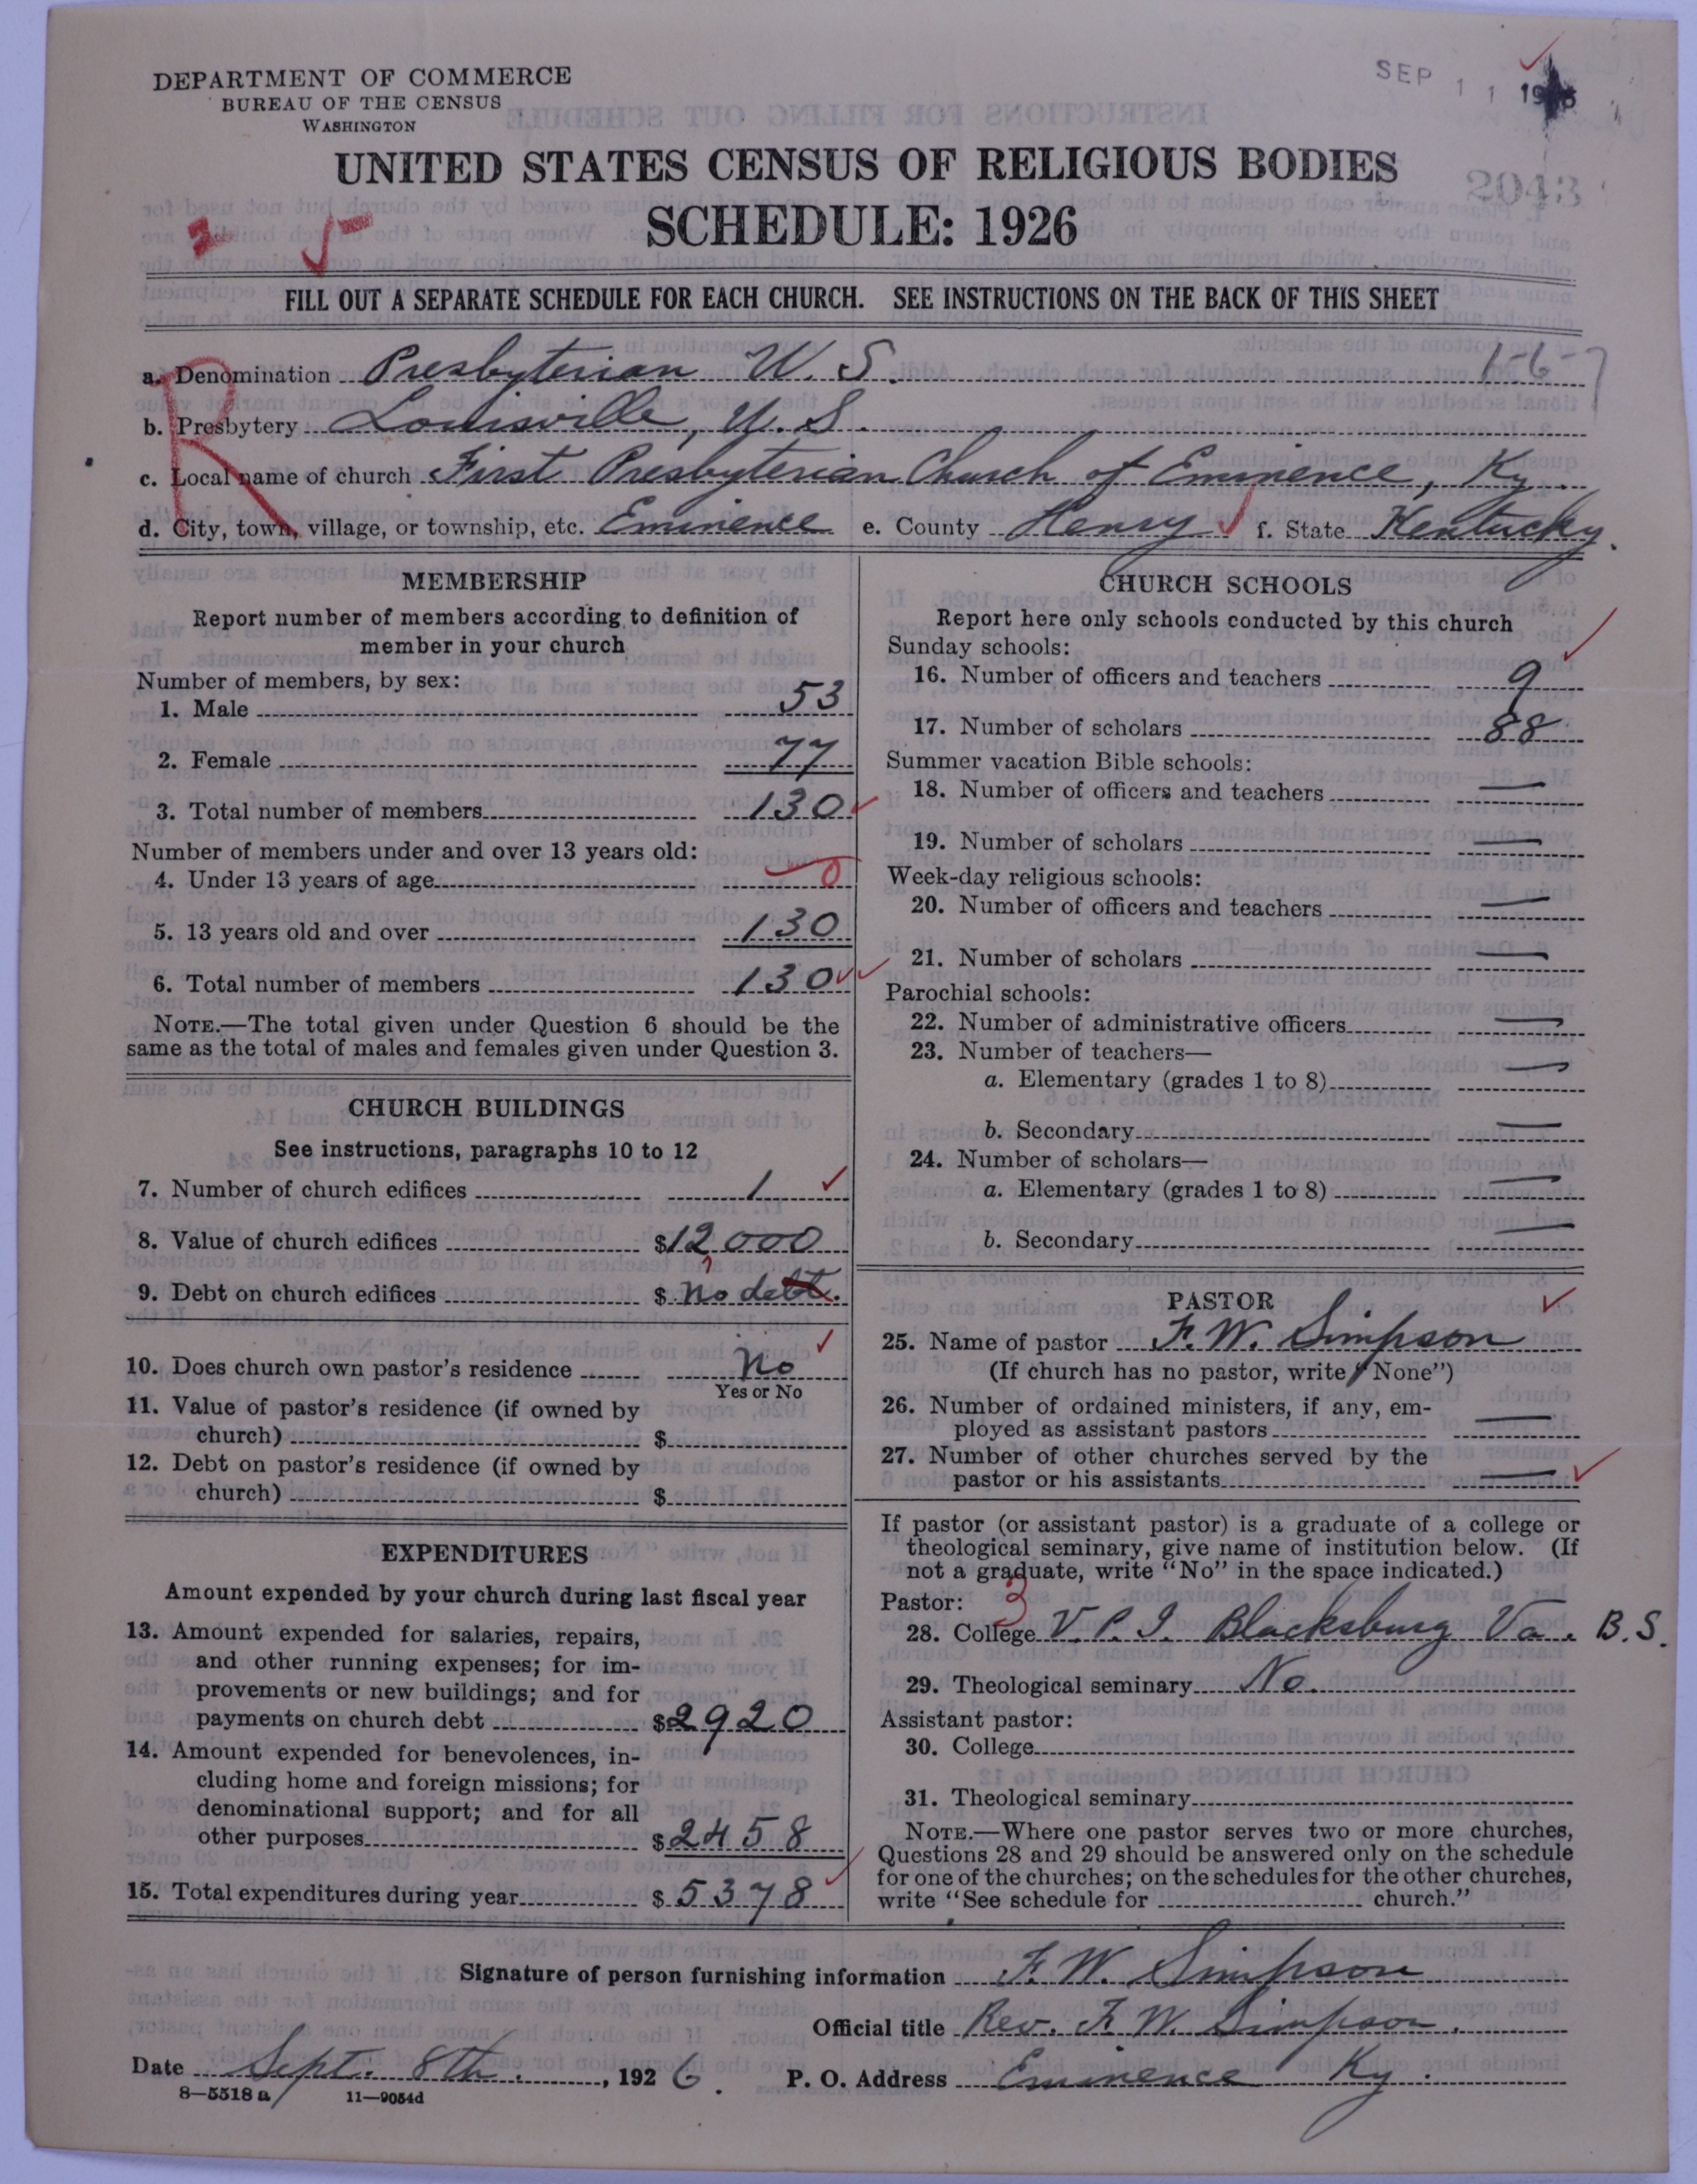 DEPARTMENT OF COMMERCE
BUREAU OF THE CENSUS
WASHINGTON
SEP 11 1926
UNITED STATES CENSUS OF RELIGIOUS BODIES
2043
SCHEDULE: 1926
3 5
FILL OUT A SEPARATE SCHEDULE FOR EACH CHURCH. SEE INSTRUCTIONS ON THE BACK OF THIS SHEET
R
a. Denomination Presbyterian U. S. 1-6-7
b. Presbytery Louisville, U. S.
c. Local name of church First Presbyterian Church of Eminence, Ky.
d. City, town, village, or township, etc. Eminence e. County Henry f. State Kentucky.
MEMBERSHIP
Report number of members according to definition of
member in your church
Number of members, by sex:
1. Male 53
2. Female 77
3. Total number of members 130
Number of members under and over 13 years old:
4. Under 13 years of age 0
5. 13 years old and over 130
6. Total number of members 130
NOTE.—The total given under Question 6 should be the
same as the total of males and females given under Question 3.
CHURCH BUILDINGS
See instructions, paragraphs 10 to 12
7. Number of church edifices 1
8. Value of church edifices $12,000
9. Debt on church edifices $ No debt.
10. Does church own pastor's residence No
Yes or No
11. Value of pastor's residence (if owned by
church) $
12. Debt on pastor's residence (if owned by
church) $
EXPENDITURES
Amount expended by your church during last fiscal year
13. Amount expended for salaries, repairs,
and other running expenses; for im-
provements or new buildings; and for
payments on church debt $2920
14. Amount expended for benevolences, in-
cluding home and foreign missions; for
denominational support; and for all
other purposes $2458
15. Total expenditures during year $5378
CHURCH SCHOOLS
Report here only schools conducted by this church
Sunday schools:
16. Number of officers and teachers 9
17. Number of scholars 88
Summer vacation Bible schools:
18. Number of officers and teachers —
19. Number of scholars —
Week-day religious schools:
20. Number of officers and teachers —
21. Number of scholars —
Parochial schools:
22. Number of administrative officers —
23. Number of teachers—
a. Elementary (grades 1 to 8) —
b. Secondary —
24. Number of scholars—
a. Elementary (grades 1 to 8) —
b. Secondary —
PASTOR
25. Name of pastor F. W. Simpson
(If church has no pastor, write "None")
26. Number of ordained ministers, if any, em-
ployed as assistant pastors —
27. Number of other churches served by the
pastor or his assistants —
If pastor (or assistant pastor) is a graduate of a college or
theological seminary, give name of institution below. (If
not a graduate, write "No" in the space indicated.)
Pastor: 3
28. College V. P. I. Blacksburg Va. B.S.
29. Theological seminary No.
Assistant pastor:
30. College
31. Theological seminary
NOTE.—Where one pastor serves two or more churches,
Questions 28 and 29 should be answered only on the schedule
for one of the churches; on the schedules for the other churches,
write "See schedule for church."
Signature of person furnishing information F. W. Simpson
Official title Rev. F. W. Simpson.
Date Sept. 8th., 1926. P. O. Address Eminence Ky.
8—5518 a 11—9054d